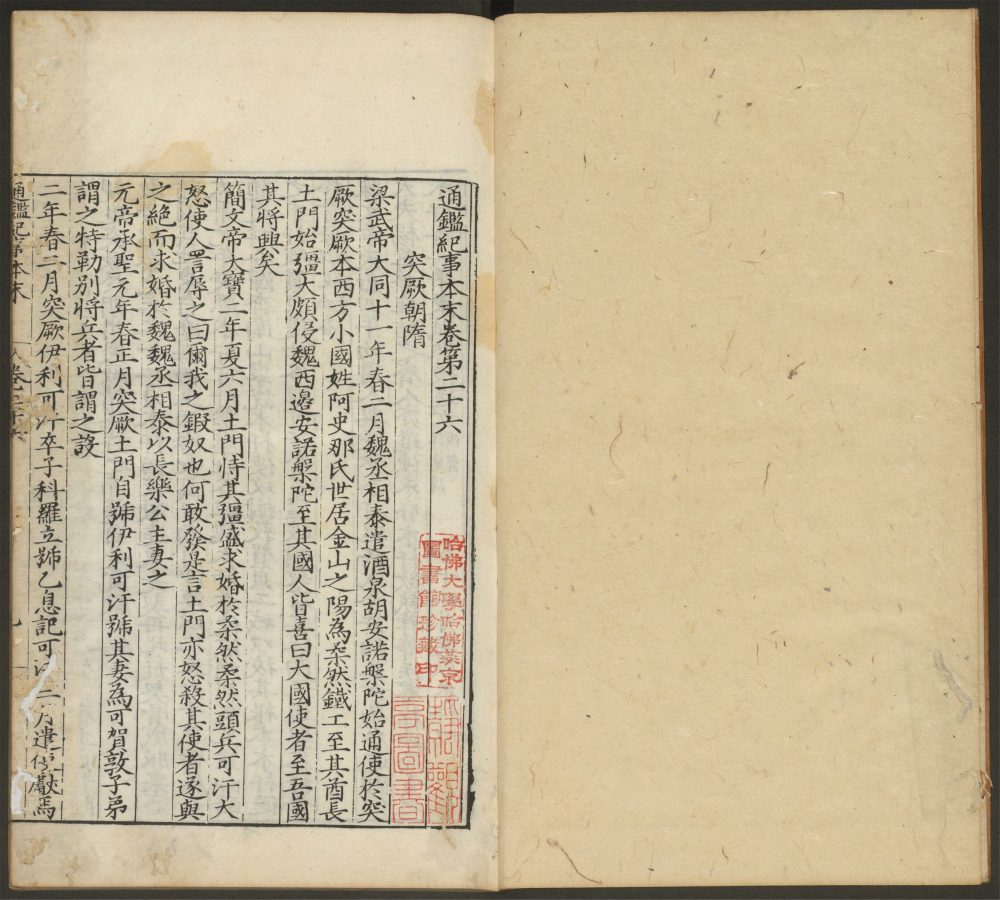 通鑑紀事本末卷第二十六
突厥朝隋
梁武帝大同十一年春二月魏丞相泰遣酒泉胡安諾槃陀始通使於突
厥突厥本西方小國姓阿史那氏世居金山之陽為柔然鐵工至其酋長
土門始彊大頗侵魏西邉安諾槃陀至其國人皆喜曰大國使者至吾國
其將興矣
簡文帝大寶二年夏六月土門恃其彊盛求婚於柔然柔然頭兵可汗大
怒使人詈辱之曰爾我之鍜奴也何敢發是言土門亦怒殺其使者遂與
之絶而求婚於魏魏丞相泰以長樂公主妻之
元帝承聖元年春正月突厥土門自號伊利可汗號其妻為可賀敦子弟
謂之特勒别將兵者皆謂之設
二年春二月突厥伊利可汗卒子科羅立號乙息記可汗三月遣使獻馬
通鑑紀事本末 卷二十六
哈佛大學哈佛燕京
圖書館珍藏印